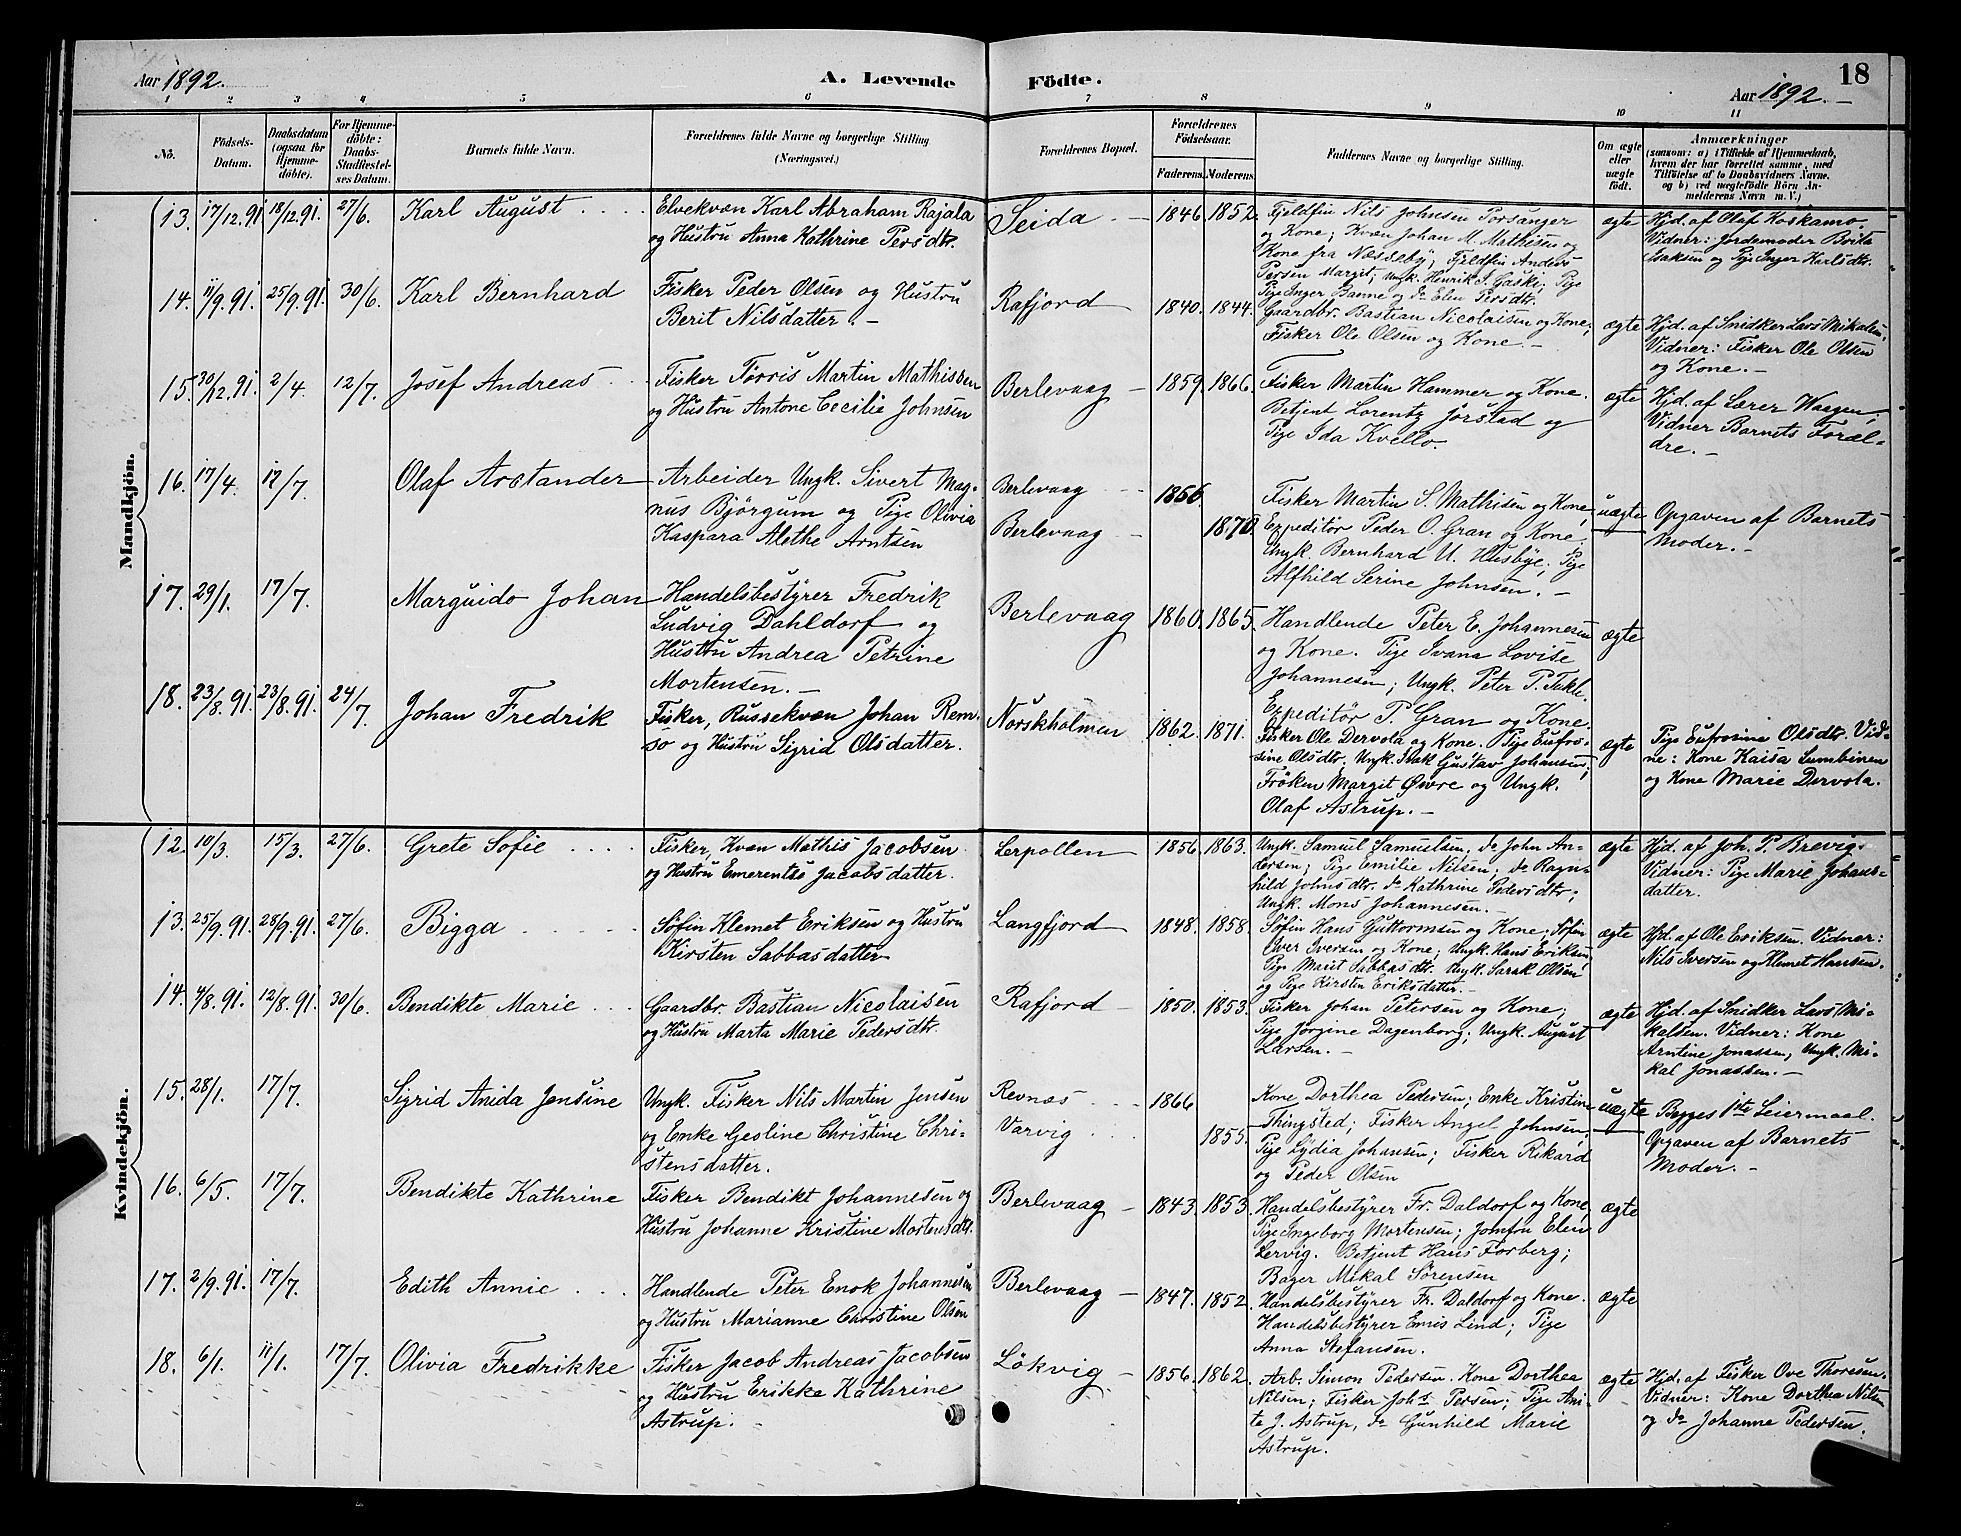 Aar 1892. A. Levende Födte. Aar 1892. 18
1 2 3 4 5 6 7 8 9 10 11
Nö.
Födsels-
Datum.
Daabsdatum
(ogsaa for
Hjemme-
döbte).
For Hjemme-
döbte:
Daabs-
Stadfæstel-
ses Datum.
Barnets fulde Navn.
Forældrenes fulde Navne og borgerlige Stilling
(Næringsvei.)
Forældrenes Bopæl.
Forældrenes
Födselsaar.
Faderens. Moderens.
Faddernes Navne og borgerlige Stilling.
Om ægte
eller
uægte
födt.
Anmærkninger
(saasom: a) i Tilfælde af Hjemmedaab,
hvem der har forrettet samme, med
Tilföielse af to Daabsvidners Navne,
og b) ved uægtefödte Börn An-
melderens Navn m. V.)
Mandkjön.
13. 17/12.91. 18/12.91. 27/6. Karl August
Elvekvæn Karl Abraham Rajala
og Hustru Anna Kathrine Persdtr.
Seida 1846 1852.
Fjeldfin Nils Johnsen Porsanger
og Kone; Kvæn Johan M. Mathisen og
Kone fra Næsseby; Fjeldfin Anders
Persen Margit; Ungk. Henrik J. Gaski; Pige
Pige Inger Banne og do Elen Persdtr.
ægte
Hjd. af Olaf Koskamo.
Vidner: Jordemoder Brita
Isaksen og Pige Inger Karlsdtr.
14. 11/9.91. 25/9.91. 30/6. Karl Bernhard
Fisker Peder Olsen og Hustru
Berit Nilsdatter.
Rafjord 1840. 1844.
Gaardbr. Bastian Nicolaisen og Kone;
Fisker Ole Olsen og Kone.
ægte
Hjd. af Snidker Lars Mikalsen,
Vidner: Fisker Ole Olsen
og Kone.
15. 30/12.91. 2/4. 12/7. Josef Andreas
Fisker Törris Martin Mathissen
og Hustru Antone Cecilie Johnsen
Berlevaag 1859. 1866.
Fisker Martin Hammer og Kone.
Betjent Lorentz Jörstad og
Pige Ida Kvello.
ægte
Hjd. af Lærer Waagen,
Vidner Barnets Foræl-
dre.
16. 17/4. 12/7. Olaf Arstander
Arbeider Ungk. Sivert Mag-
nus Björgum og Pige Olivia
Kaspara Alethe Arntsen
Berlevaag 1856.
Berlevaag 1870.
Fisker Martin S. Mathisen og Kone,
Expeditör Peder O. Gran og Kone,
Ungk. Bernhard U. Husbye; Pige
Alfhild Serine Johnsen.
uægte
Opgaven af Barnets
Moder.
17. 29/1. 17/7. Marguido Johan
Handelsbestyrer Fredrik
Ludvig Dahldorf og
Hustru Andrea Petrine
Mortensen.
Berlevaag 1860. 1865.
Handlende Peter E. Johannesen
og Kone. Pige Svana Lovise
Johannesen; Ungk. Peter P. Tekle.
Expeditör P. Gran og Kone.
ægte
18. 23/8.91. 23/8.91. 24/7. Johan Fredrik
Fisker, Russekvæn Johan Rem-
so og Hustru Sigrid Olsdatter.
Norskholmen 1862. 1871.
Fisker Ole Dervola og Kone. Pige Eufro-
sine Olsdtr. Ungk. Isak Gustav Johansen;
Fröken Margit Øvre og Ungk.
Olaf Astrup.
ægte
Pige Eufrosine Olsdtr. Vid-
ne: Kone Kaisa Lumbinen
og Kone Marie Dervola.
Kvindekjön.
12. 10/3. 15/3. 27/6. Grete Sofie
Fisker, Kvæn Mathis Jacobsen
og Hustru Emerentse Jacobsdatter.
Lerpollen 1856. 1863.
Ungk. Samuel Samuelsen, do John An-
dersen; Pige Emilie Nilsen; do Ragn-
hild Johnsdtr. do Kathrine Pedersdtr;
Ungk. Mons Johannesen.
ægte
Hjd. af Joh. P. Brevig.
Vidner: Pige Marie Johans-
datter.
13. 25/9.91. 28/9.91. 27/6. Bigga
Söfin Klemet Eriksen og Hustru
Kirsten Sabbasdatter
Langfjord 1848. 1858.
Söfin Hans Guttormsen og Kone; Söfin
Iver Iversen og Kone; Ungk. Hans Eriksen,
Pige Marit Sabbasdtr. Ungk. Sarak Olsen
og Pige Kirsten Eriksdatter.
ægte
Hjd. af Ole Eriksen. Vidner:
Nils Iversen og Klemet Hansen.
14. 4/8.91. 12/8.91. 30/6. Bendikte Marie
Gaardbr. Bastian Nicolaisen
og Hustru Marta Marie Pedersdtr.
Rafjord 1850. 1853.
Fisker Johan Petersen og Kone;
Pige Jörgine Dagenborg; Ungk. August
Larsen.
ægte
Hjd. af Snidker Lars Mi-
kalsen. Vidner: Kone
Arntine Jonassen, Ungk. Mi-
kal Jonassen.
15. 28/1. 17/7. Sigrid Anida Jensine
Ungk. Fisker Nils Martin Jensen
og Enke Gesline Christine Chri-
stensdatter.
Revnæs 1866
Varvig 1855.
Kone Dorthea Pedersen; Enke Kristine
Thingsted; Fisker Angel Johnsen;
Pige Lydia Johansen; Fisker Rikard
og Peder Olsen
uægte
Begges 1ste Leiermaal.
Opgaven af Barnets
Moder.
16. 6/5. 17/7. Bendikte Kathrine
Fisker Bendikt Johannesen og
Hustru Johanne Kristine Mortensdtr.
Berlevaag 1843. 1853.
Handelsbestyrer Fr. Daldorf og Kone,
Pige Ingeborg Mortensen; Jomfru Elen
Lervig. Betjent Hans Forberg;
Bager Mikal Sörensen
ægte
17. 2/9.91. 17/7. Edith Annie
Handlende Peter Enok Johannesen
og Hustru Marianne Christine Olsen
Berlevaag 1847. 1852.
Handelsbestyrer Fr. Daldorf og Kone.
Handelsbestyrer Emis Lind; Pige
Anna Stefansen.
ægte
18. 6/1. 11/1. 17/7. Olivia Fredrikke
Fisker Jacob Andreas Jacobsen
og Hustru Erikke Kathrine
Astrup.
Lökvig 1856. 1862.
Arb. Simon Pedersen. Kone Dorthea
Nilsen; Fisker Johs Persen; Pige Ani-
ta J. Astrup, do Gunhild Marie
Astrup.
ægte
Hjd. af Fisker Ove Thoresen.
Vidner: Kone Dorthea Nilsen
og do Johanne Pedersen.